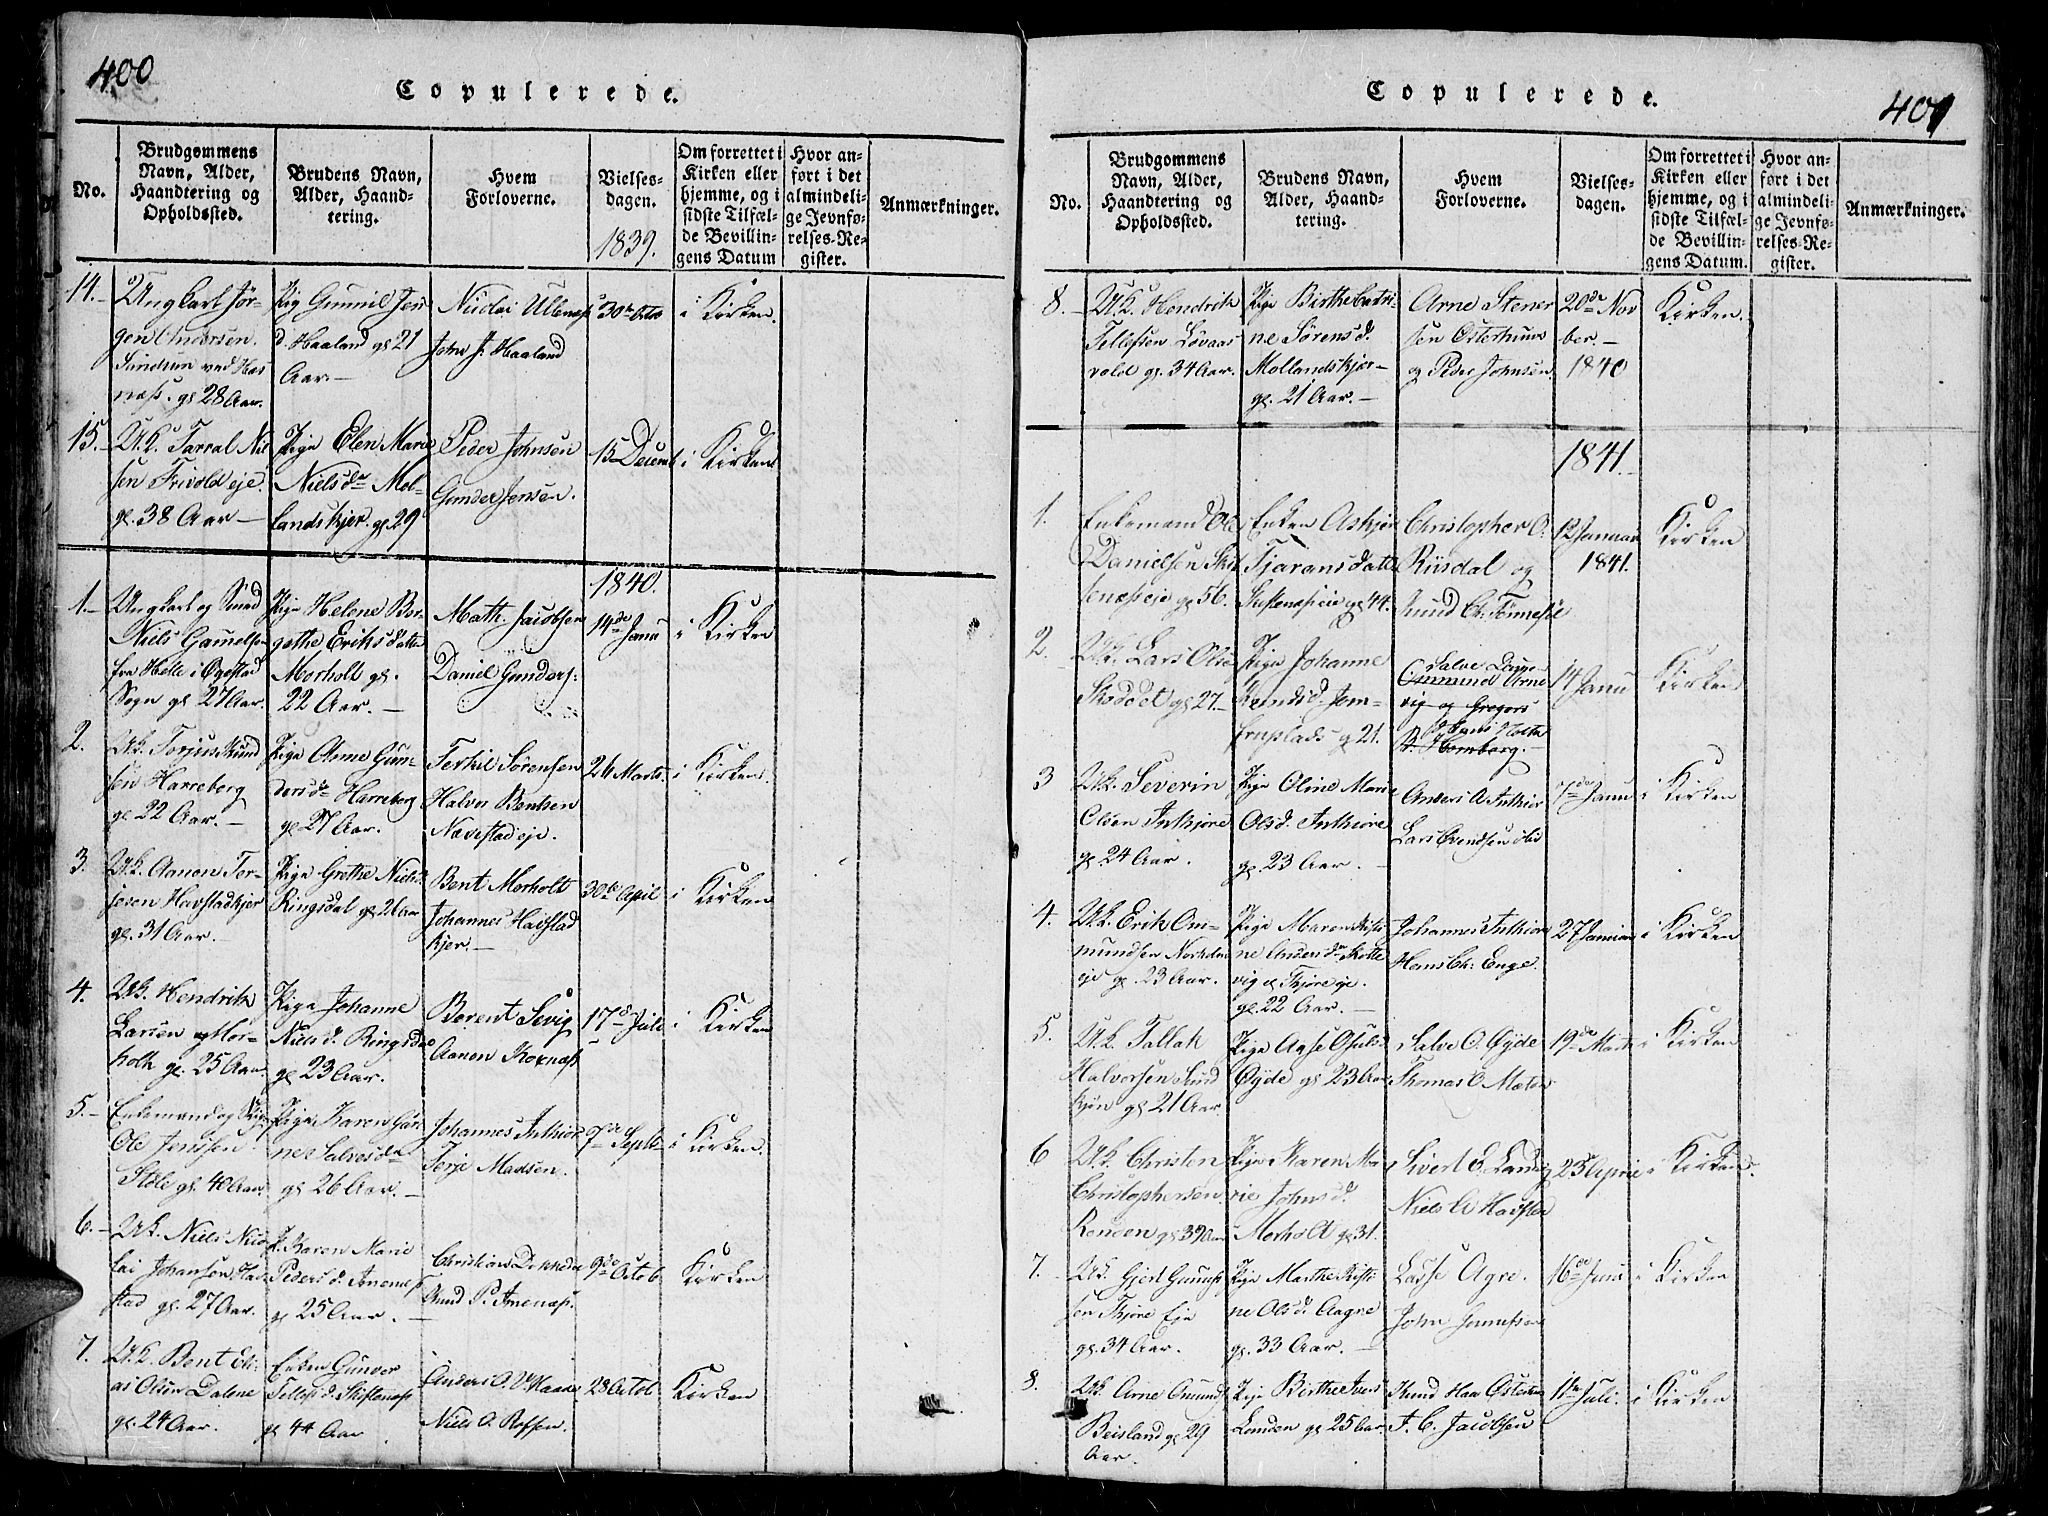 400
Copulerede.
No.
Brudgommens
Navn, Alder,
Haandtering og
Opholdssted.
Brudens Navn,
Alder, Haand-
tering.
Hvem
Forloverne.
Vielses-
dagen.
1839.
Om forrettet i
Kirken eller
hjemme, og i
sidste Tilfæl-
de Bevillin-
gens Datum
Hvor an-
ført i det
almindeli-
ge Jevnfø-
relses-Re-
gister.
Anmærkninger.
14.-
Ungkarl Jør-
gen Andersen.
næss. gl 28 Aar.
Pig Gunnil Jens
d. Haaland gl 21
Aar.-
Nicolai
John J. Haaland
30te Octo
i Kirken.
15.-
U.K. Tarral Niel
sen Frivold eje.
gl. 38 Aar -
Pige Elen Marie
Nielsdr Mol-
landskjer. gl 29
Peder Johnsen
Gunder Jensen.
15 Decemb
i Kirken
1840.
1.-
Ungkarl og Smed
Niels Gamelsen
fra Helle i Øyestad
Sogn gl 27 Aar.
Pige Helene Bor-
gethe Eriksdatter
Morholt gl.
22 Aar.-
Math. Jacobsen
Daniel Gunders:
14de Janu
i Kirken
2.
U.K. Torjus Knud
sen Harreberg
gl 22 Aar.-
Pige Anne Gun-
dersdr Harreberg
gl 27 Aar.
Terkil Sørensen
Halvor Bentsen
Nævestad eje.
26 Marts.
i Kirken.
3.
U.K. Aanon Ter-
jesen Havstadkjer
gl. 31 Aar.-
Pige Grethe Niels
Ringsdal gl 26 Aar
Bent Morholt
Johannes Havstad
kjer.-
30te April
i Kirken
4.
U.K. Hendrik
Larsen Mor-
holt gl. 25 Aar
Pige Johanne
Nielsd. Ringsdal
gl 23 Aar.
Berent Sevig
Aanon Kornæss
17de Juli
i Kirken
5.-
Enkemand og
Ole Jenssen
Støle gl. 40 Aar.
Pige Karen Gur
ne Salvesdr
gl 26 Aar.-
Johannes Inthiør
Terje Madsen.
7de Septe
i Kirken.
6.-
U.K. Niels Nico
lai Johansen Hav
stad gl. 27 Aar.
P. Karen Marie
Peders d.
gl 25 Aar.-
Christian
Knud P.
9de Octob
Kirken
7.
U.K. Bent Eli-
as Olsen Dalene
gl. 24 Aar.
Enken Gunvor
Tellefsd. Skiftenæs
gl 44 Aar
Anders O.
Niels O. Rossen.
28 Octob
Kirken
Copulerede.
401
No.
Brudgommens
Navn, Alder,
Haandtering og
Opholdssted.
Brudens Navn,
Alder, Haand-
tering.
Hvem
Forloverne.
Vielses-
dagen.
Om forrettet i
Kirken eller
hjemme, og i
sidste Tilfæl-
de Bevillin-
gens Datum.
Hvor an-
ført i det
almindeli-
ge Jevnfø-
relses-Re-
gister.
Anmærkninger.
8.-
U.K. Hendrik
Tellefsen Løvaas
vold gl. 34 Aar.
Pige Birthe Catri
ne Sørensd.
Mollandskjær-
gl. 21 Aar.-
Arne Stener
sen Osterhuus
og Peder Johnsen.
20de Nov
ber.-
1840
Kirken.
1841.
1.
Enkemand Ole
Danielsen Skif
tenæs eje gl 56.
Enken Askjer
Tjaransdatter
Skiftenæs eie gl 44.
Christopher O.
Riisdal og
Knud Ch. Tønnesøl
12 Januar
1841.
Kirken
2.
U.K. Lars Olse
gl 27.-
Pige Johanne
Knudsd. Jom-
fruplads g 21.
Salve
vig og Gregers
Homberg.-
14 Janu
Kirken
3
U.K. Severin
Olsen Inthjøre
gl 24 Aar.
Pige Oline Marie
Olsd. Inthiøre
gl. 23 Aar.-
Anders A. Inthiør
Lars Evendsen
7de Janu
i Kirken
4.
U.K. Erik Om-
mundsen Norholm
eje gl. 23 Aar.
Pige Maren Kisti
ne Andersdr Skotte
vig og Tkjøre eje.
gl. 22 Aar.-
Johannes Inthiør
Hans Ch: Enge.
27 Januar
i Kirken
5.
U.K. Tallak
Halvorsen
kjøn gl 21 Aar.
Pige Aase Osuls
Øyde gl 23 Aar
Salve O. Øyde
Thomas O.
19de Marts
i Kirken
6
U.K. Christen
Christophersen
gl 39 Aar
Pige Karen Ma
rie Johnsd.
Morholt gl 31.
Sivert E. Land
Niels A Havsted
23 April
i Kirken.
7.
U.K. Gjert Gunuf
sen Tkjøre Eje
gl. 34 Aar.
Pige Marthe Kisti
ne Olsd. Aagre
gl. 33 Aar.-
Lasse Agre.
John Gunufsen
16de Juni
i Kirken
8.
U.K. Arne Omund
Beisland gl 29
Aar.
Pige Birthe Ivers
Landen gl 25 Aar.
Knud Haa
T. C. Jacobsen
11te Juli.
i Kirken